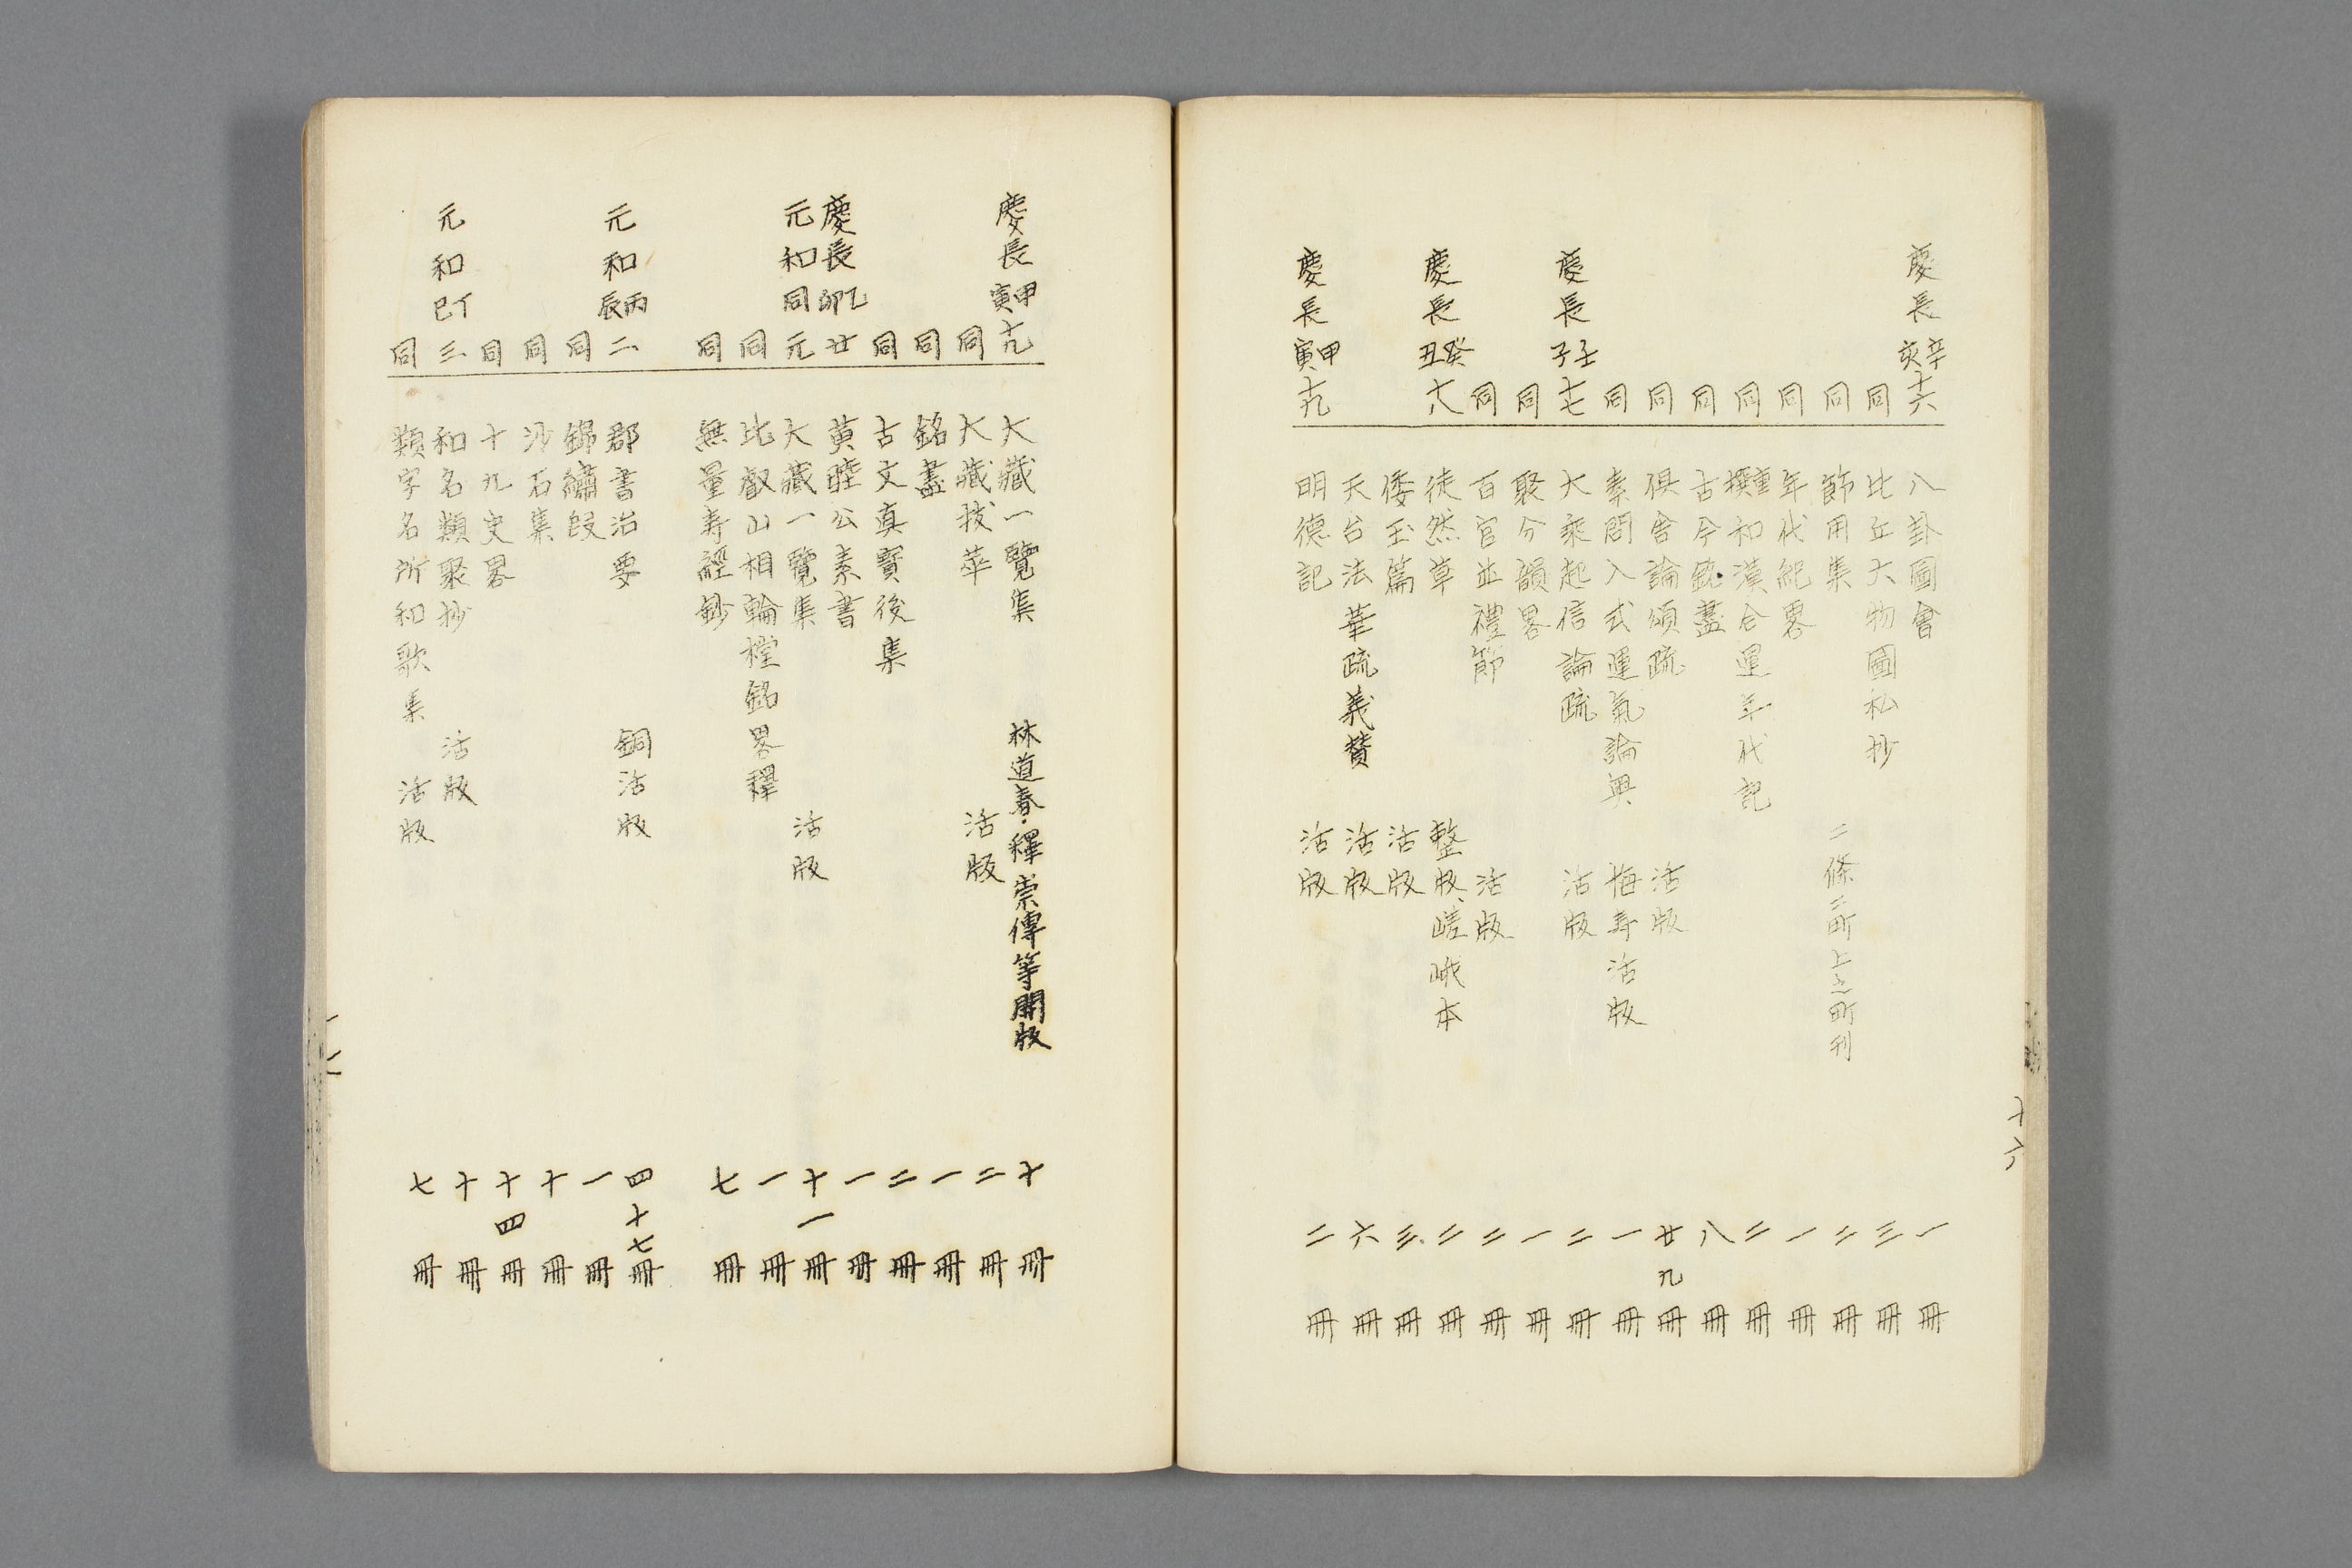 慶長辛亥十六 八卦圖會 一冊
同 比丘六物圖私抄 三冊
同 節用集 二條二町上ミ町刊 二冊
同 年代紀畧 一冊
同 重撰和漢合運年代記 二冊
同 古今銘盡 八冊
同 俱舍論頌疏 活版 廿九冊
同 素問入式運氣論奥 梅寿活版 一冊
慶長壬子十七 大乘起信論疏 活版 二冊
同 聚分韻畧 一冊
同 百官並禮節 活版 二冊
慶長癸丑十八 徒然草 整版、嵯峨本 二冊
倭玉篇 活版 三冊
天台法華疏義賛 活版 六冊
慶長甲寅十九 明德記 活版 二冊
十六
慶長甲寅十九 大藏一覽集 林道春·釋崇傳等開版 十冊
同 大藏拔萃 活版 二冊
同 銘盡 一冊
同 古文真寳後集 二冊
慶長乙卯廿 黄石公素書 一冊
元和同元 大藏一覽集 活版 十一冊
同 比叡山相輪橖銘畧釋 一冊
同 無量寿經鈔 七冊
元和丙辰二 郡書治要 銅活版 四十七冊
同 錦繡段 一冊
同 沙石集 十冊
同 十九史畧 十四冊
元和丁巳三 和名類聚抄 活版 十冊
同 類字名所和歌集 活版 七冊